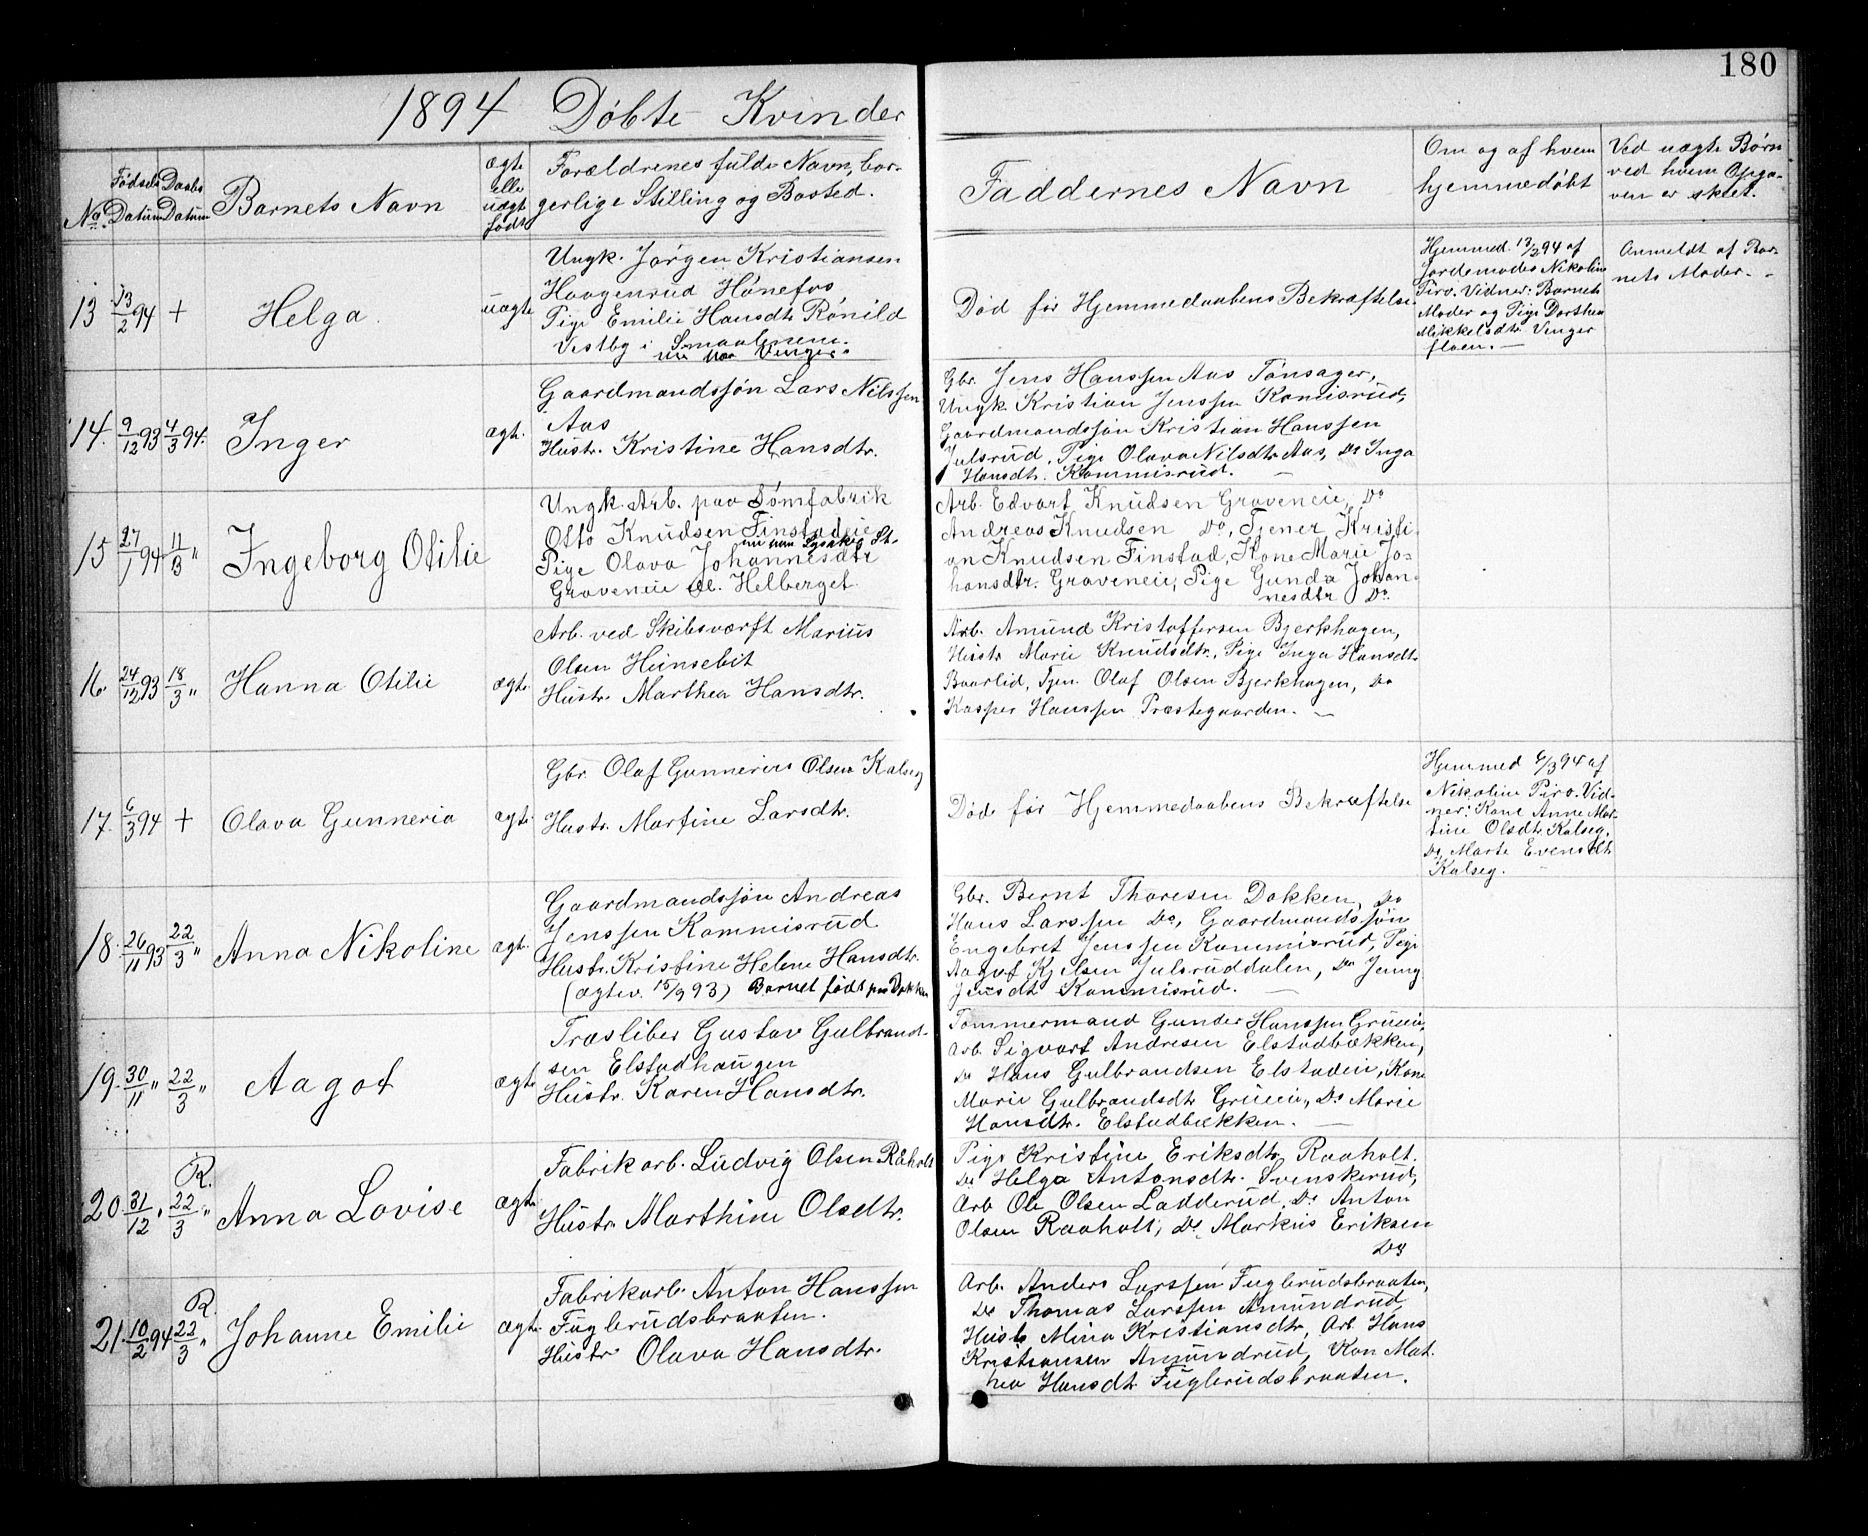 180
1894 Döbte Kvinder
No.
Fødsels Datum
Daabs Datum
Barnets Navn
ægte elle uægt. født
Forældrenes fulde Navn, bor-
gerlige Stilling og Bosted.
Faddernes Navn
Om og af hvem
hjemmedöbt
Ved uægte Børn
ved hvem Opga-
ven er skeet.
13 13/2 94 + Helga uægte
Ungk. Jörgen Kristiansen
Haagenrud Hönefos
Pige Emilie Hansdtr Rönild
Vestby i Smaalenene.
nu paa Vinger.
Död för Hjemmedaabens Bekræftelse
Hjemmed. 13/2 94 af
Jordemoder Nikoline
Piro. Vidner: Barnets
Moder og Pige Dorthea
Mikkelsdtr Vinger
floen. —
Anmeldt af Bar-
nets Moder. -
14. 9/12 93 4/3 94. Inger ægt.
Gaardmandssjön Lars Nilssen
Aas
Hustr. Kristine Hansdtr.
Gbr. Jens Hanssen Aas Tönsager,
Ungk. Kristian Jenssen Komisrud,
Gaardmandssjön Kristian Hanssen
Julsrud, Pige Olava Nilsdtr Aas, Do Inga
Hansdtr. Kommisrud. —
15 27/1 94 11/3 " Ingeborg Otilie
Ungk. Arb. paa Sömfabrik
Otto Knudsen Finstadeie
nu paa Lysaker St.
Pige Olava Johannesdtr
Graveneie Helberget
Arb. Edvart Knudsen Graveneie, Do
Andreas Knudsen Do, Tjener Kristi-
an Knudsen Finstad, Kone Marie Jo-
hansdtr. Graveneie, Pige Gunda Johan-
nesdtr Do.
16. 24/12 93 18/3 " Hanna Otilie ægte
Arb. ved Skibsværft Marius
Olsen Heinsebit
Hustr. Marthea Hansdtr.
Arb. Amund Kristoffersen Bjerkhagen,
Hustr Marie Knudsdtr., Pige Inga Hansdtr
Baarlid, Tjen. Olaf Olsen Bjerkhagen, Do
Kasper Hanssen Præstegaarden. —
17. 6/3 94 + Olava Gunneria ægte
Gbr. Olaf Gunnerius Olsen Kalseg
Hustr. Martine Larsdtr.
Döde för Hjemmedaabens Bekræftelse
Hjemmed 6/3 94 af
Nikoline Piro. Vid-
ner: Kone Anne Mar-
tine Olsdtr. Kalseg,
Do Marte Evensdtr
Kalseg. —
18. 26/11 93 22/3 " Anna Nikoline ægt.
Gaardmandssjön Andreas
Jenssen Kommisrud
Hustr. Kristine Helene Hansdtr.
(ægtev. 15/9 93) Barnet født paa Dokken
Gbr. Bernt Thoresen Dokken, Do
Hans Larssen Do, Gaardmandssjön
Engebret Jenssen Kommisrud, Pige
Aagot Kjelsen Julsruddalen, Do Jenny
Jensdtr Kommisrud. —
19. 30/11 " 22/3 " Aagot ægte
Træsliber Gustav Gulbrand-
sen Elstadhaugen
Hustr. Karen Hansdtr.
Tömmermand Gunder Hanssen Grueeie,
Arb. Sigvart Andresen Elstadbækken,
Do Hans Gulbrandsen Elstadeie, Kone
Marie Gulbrandsdtr Grueeie, Do Marie
Hansdtr. Elstadbækken. —
20. 31/12 " R. 22/3 " Anna Lovise ægte
Fabrikarb. Ludvig Olsen Råholt
Hustr Marthine Olsdtr.
Pige Kristine Eriksdtr Raaholt.
Do Helga Antonsdtr. Svenskerud,
Arb Ole Olsen Ladderud, Do Anton
Olsen Raaholt, Do Markus Eriksen
Do
21. 10/2 94 R. 22/3 " Johanne Emilie ægte
Fabrikarb. Anton Hanssen
Fuglerudsbraaten.
Hustr Olava Hansdtr.
Arb. Anders Larssen Fuglerudsbraaten,
Do Thomas Larssen Amundrud,
Hustr Mina Kristiansdtr, Arb. Hans
Kristiansen Amundrud, Kon Mat-
hea Hansdtr Fuglerudsbraaten.